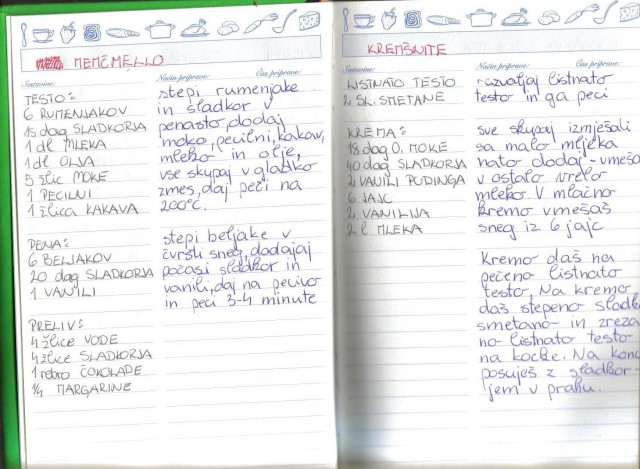 MEMČMELLO
Sestavine:
Način priprave:
Čas priprave:
TESTO:
6 RUMENJAKOV
15 dag SLADKORJA
1 dl MLEKA
1 dl OLJA
5 žlic MOKE
1 PECILNI
1 žlica KAKAVA
PENA:
6 BELJAKOV
20 dag SLADKORJA
1 VANILI
PRELIV:
4 žlice VODE
4 žlice SLADKORJA
1 rebro ČOKOLADE
1/4 MARGARINE
stepi rumenjake
in sladkor v
penasto, dodaj
moko, pecilni, kakav,
mleko in olje,
vse skupaj v gladko
zmes, daj peči na
200°C.
stepi beljake v
čvrsti sneg, dodajaj
počasi sladkor in
vanili, daj na pecivo
in peci 3-4 minute
KREMŠNITE
Sestavine:
Način priprave:
Čas priprave:
LISTNATO TESTO
2 sl. SMETANE
KREMA:
18 dag O. MOKE
40 dag SLADKORJA
2 VANILI PUDINGA
6 JAJC
2 VANILIJA
2 l MLEKA
razvaljaj listnato
testo in ga peci
Sve skupaj izmješaš
sa malo mljeka
nato dodaj - vmeša
v ostalo vrelo
mleko. V mlačno
kremo vmešaš
sneg iz 6 jajc
Kremo daš na
pečeno listnato
testo. Na kremo
daš stepeno sladk
smetano in zreza
no listnato testo
na kocke. Na kon
posuješ z sladkor-
jem v prahu.